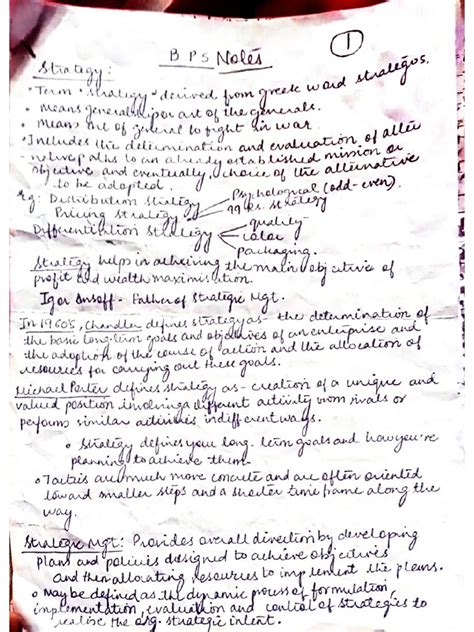 BPS Notes
1
Strategy:
• Term "strategy" derived from greek word strategos.
• Means generalship or art of the generals.
• Means art of general to fight in war.
• Includes the determination and evaluation of alter
-native paths to an already established mission or
objective and eventually, choice of the alternative
to be adopted.
Eg: Distribution Strategy
Pricing Strategy Psychological (odd-even).
99 Rs. Strategy
Differentiation Strategy quality
color
packaging.
Strategy helps in achieving the main objective of
profit and wealth maximisation.
Igor Ansoff - Father of Strategic Mgt.
In 1960s, Chandler defines strategy as - the determination of
the basic long-term goals and objectives of an enterprise and
the adoption of the course of action and the allocation of
resources for carrying out these goals.
Michael Porter defines strategy as - creation of a unique and
valued position involving a different activity from rivals or
performs similar activities in different ways.
• Strategy defines your long-term goals and how you're
planning to achieve them.
• Tactics are much more concrete and are often oriented
toward smaller steps and a shorter time frame along the
way.
Strategic Mgt: Provides overall direction by developing
plans and policies designed to achieve objectives
and then allocating resources to implement the plans.
• May be defined as the dynamic process of formulation,
implementation, evaluation and control of strategies to
realise the org. strategic intent.